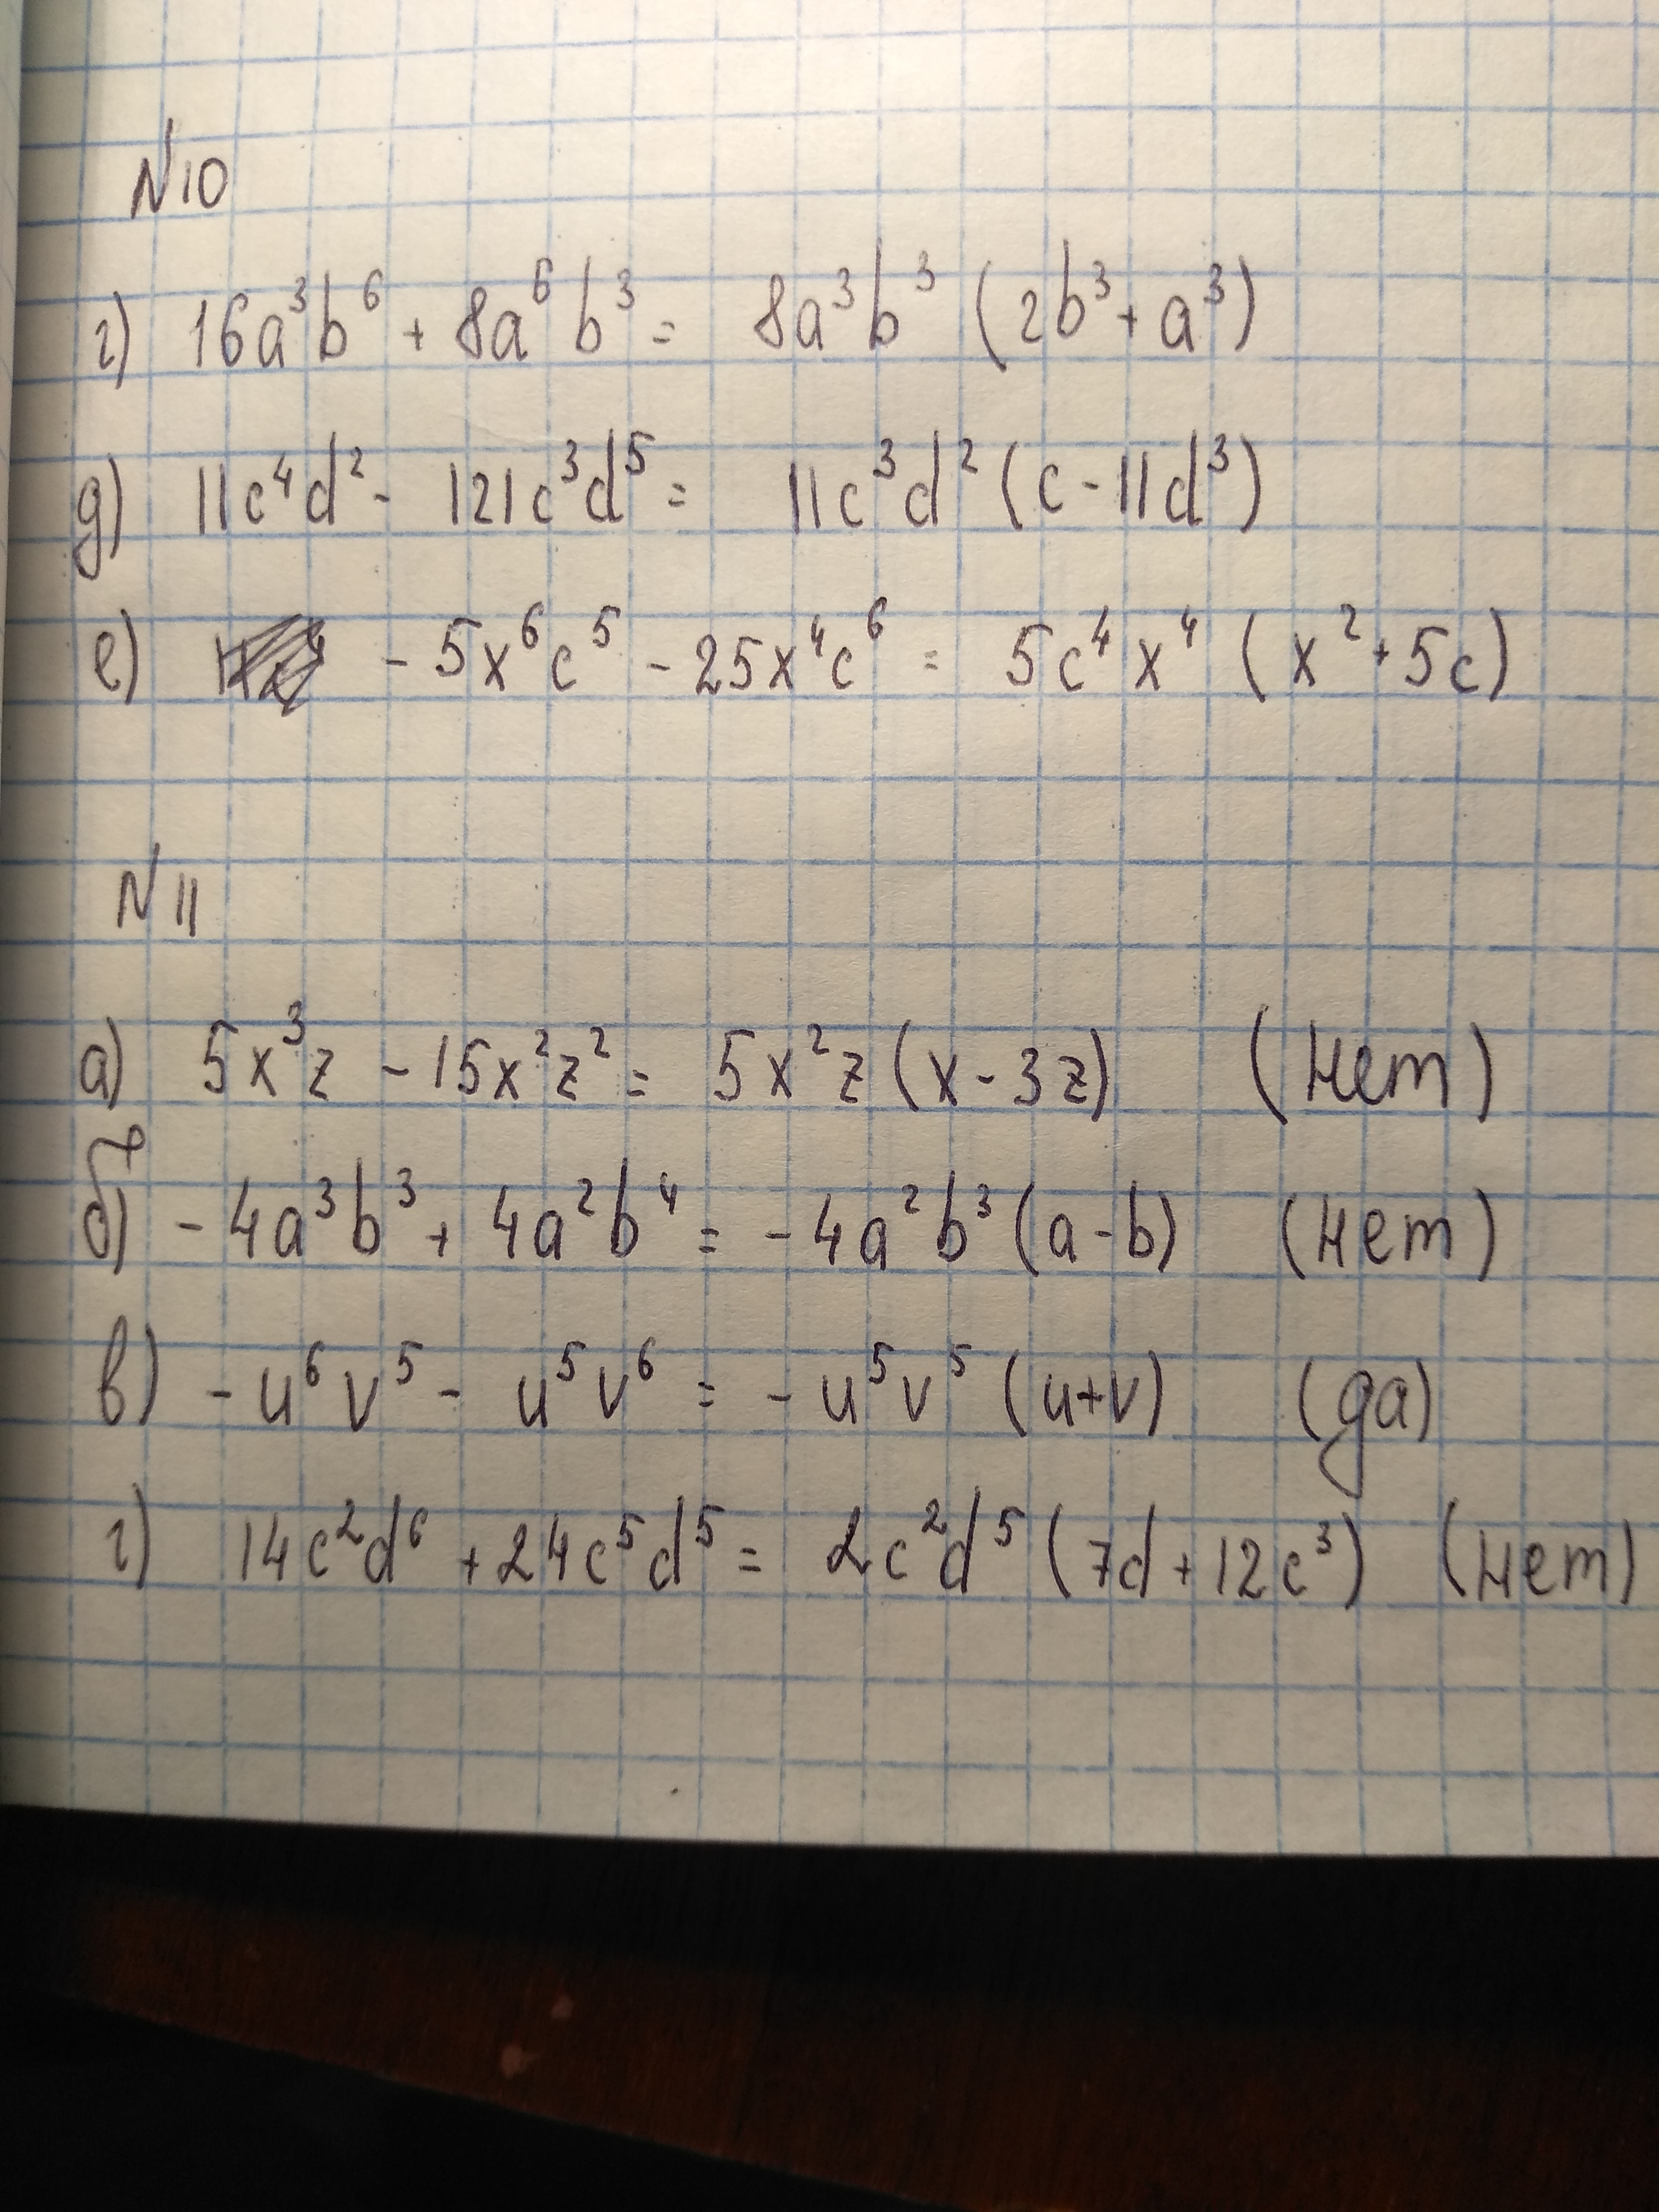 N10
г) 16a³b⁶ + 8a⁶b³ = 8a³b³ (2b³ + a³)
д) 11c⁴d² - 121c³d⁵ = 11c³d² (c - 11d³)
е) - 5x⁶c⁵ - 25x⁴c⁶ = 5c⁴x⁴ (x² + 5c)
N11
а) 5x³z - 15x²z² = 5x²z (x - 3z) (нет)
б) - 4a³b³ + 4a²b⁴ = - 4a²b³ (a - b) (нет)
в) - u⁶v⁵ - u⁵v⁶ = - u⁵v⁵ (u + v) (да)
г) 14c²d⁶ + 24c⁵d⁵ = 2c²d⁵ (7d + 12c³) (нет)